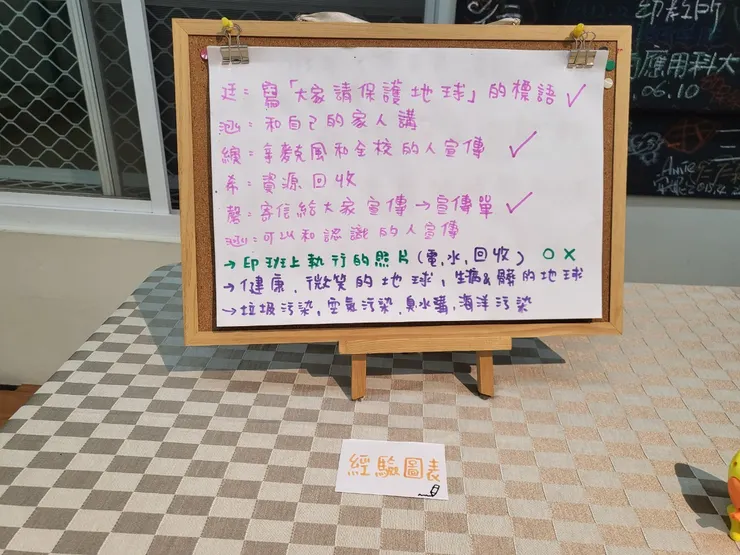 印教所
應用科大
.06.10
廷：寫「大家請保護地球」的標語 ✓
涵：和自己的家人講
繽：拿麥克風和全校的人宣傳 ✓
希：資源回收
馨：寄信給大家宣傳→宣傳單 ✓
涵：可以和認識的人宣傳
→印班上執行的照片(電,水,回收) O X
→健康、微笑的地球,生病&髒的地球
→垃圾污染,空氣污染,臭水溝,海洋污染
經驗圖表